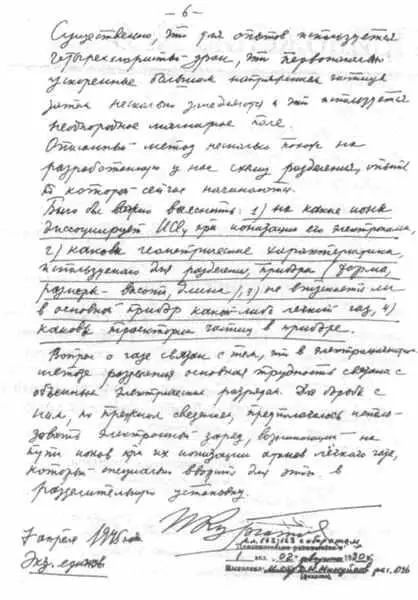 — 6 —
Существенно, что для опытов используется
четыреххлористый уран, что первоначально
ускоренные большим напряжением частицы
затем несколько замедляются и что используется
неоднородное магнитное поле.
Описанный метод несколько похож на
разработанную у нас схему разделения, опыты
с которой сейчас начинаются.
Было бы важно выяснить: 1) на какие ионы
диссоциирует UCl₄ при ионизации его электронами,
2) каковы геометрические характеристики,
используемого для разделения, прибора (форма,
размеры - высота, длина), 3) не впускают ли
в основной прибор какой-либо легкий газ, 4)
каковы траектории частиц в приборе.
Вопрос о газе связан с тем, что в электромагнитном
методе разделения основная трудность связана с
объемным электрическим разрядом. Для борьбы с
ним, по прежним сведениям, предполагалось исполь-
зовать электронный заряд, возникающий на
пути ионов при их ионизации атомов легкого газа,
который специально вводит для этого в
разделительную установку.
7 апреля 1945 года
Экз. единств.
1 экз. 02